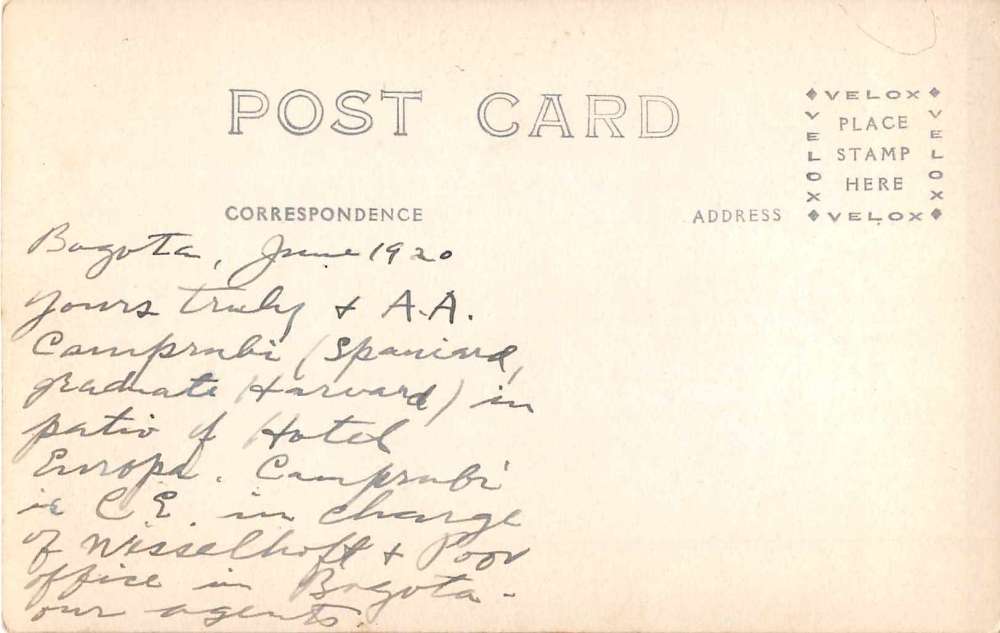 POST CARD
VELOX
VELOX
PLACE
STAMP
HERE
VELOX
VELOX
CORRESPONDENCE
ADDRESS
Bogota, June 1920
Yours truly & A.A.
Camprubi (Spaniard,
graduate Harvard) in
patio of Hotel
Europa. Camprubi
is C.E. in charge
of Wisselhoft & Poor
office in Bogota -
our agents.